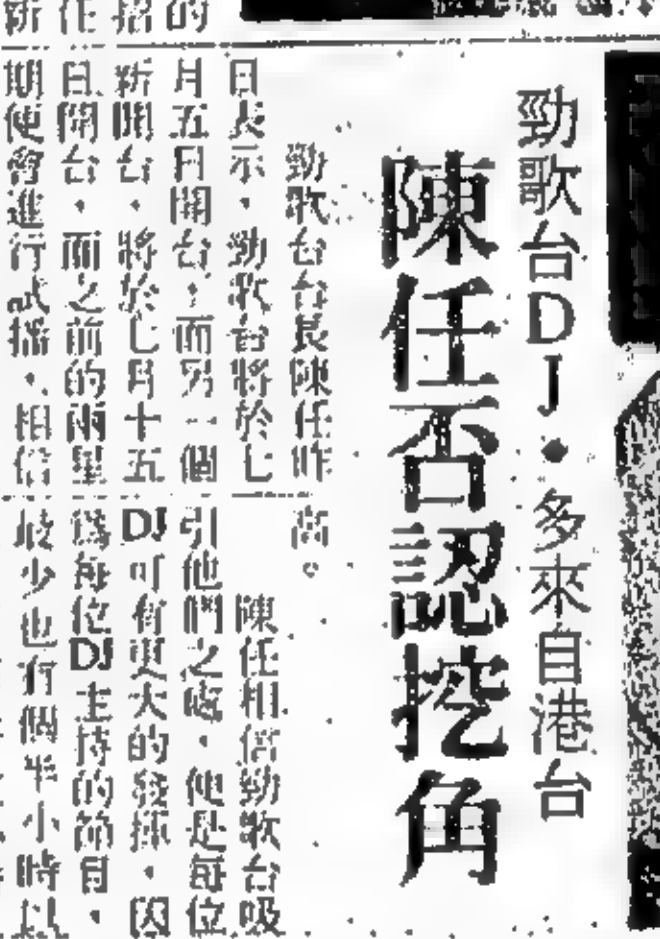 勁歌台DJ・多來自港台
陳任否認挖角
勁歌台台長陳任昨
日表示，勁歌台將於七
月五日開台，而另一個
新開台，將於七月十五
日開台，而之前的兩星
期便會進行試播，相信
高。
陳任相信勁歌台吸
引他們之處，便是每位
DJ可有更大的發揮，因
為每位DJ主持的節目，
最少也有個半小時以